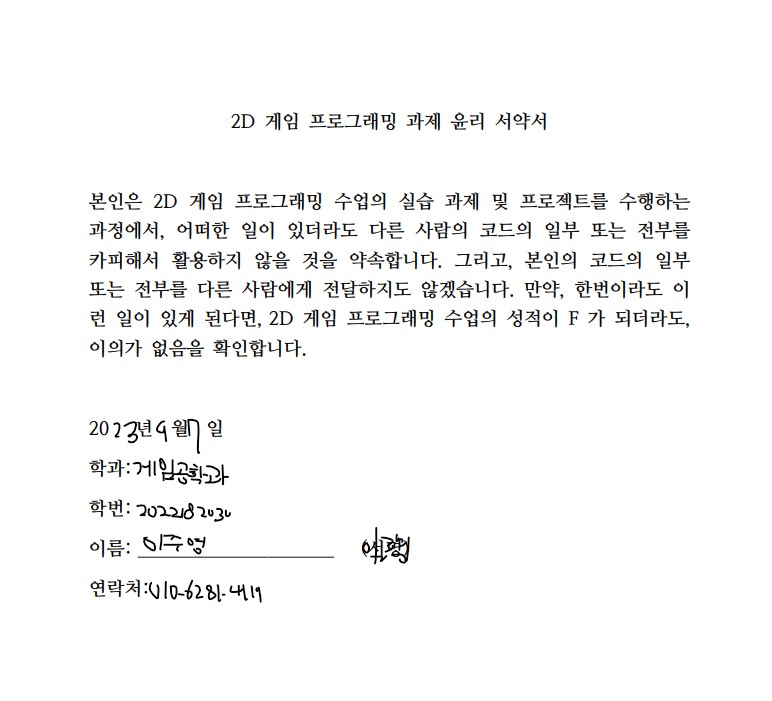 2D 게임 프로그래밍 과제 윤리 서약서
본인은 2D 게임 프로그래밍 수업의 실습 과제 및 프로젝트를 수행하는
과정에서, 어떠한 일이 있더라도 다른 사람의 코드의 일부 또는 전부를
카피해서 활용하지 않을 것을 약속합니다. 그리고, 본인의 코드의 일부
또는 전부를 다른 사람에게 전달하지도 않겠습니다. 만약, 한번이라도 이
런 일이 있게 된다면, 2D 게임 프로그래밍 수업의 성적이 F 가 되더라도,
이의가 없음을 확인합니다.
2023년 9월 7일
학과: 게임공학과
학번: 2022182030
이름: 이주영
연락처: